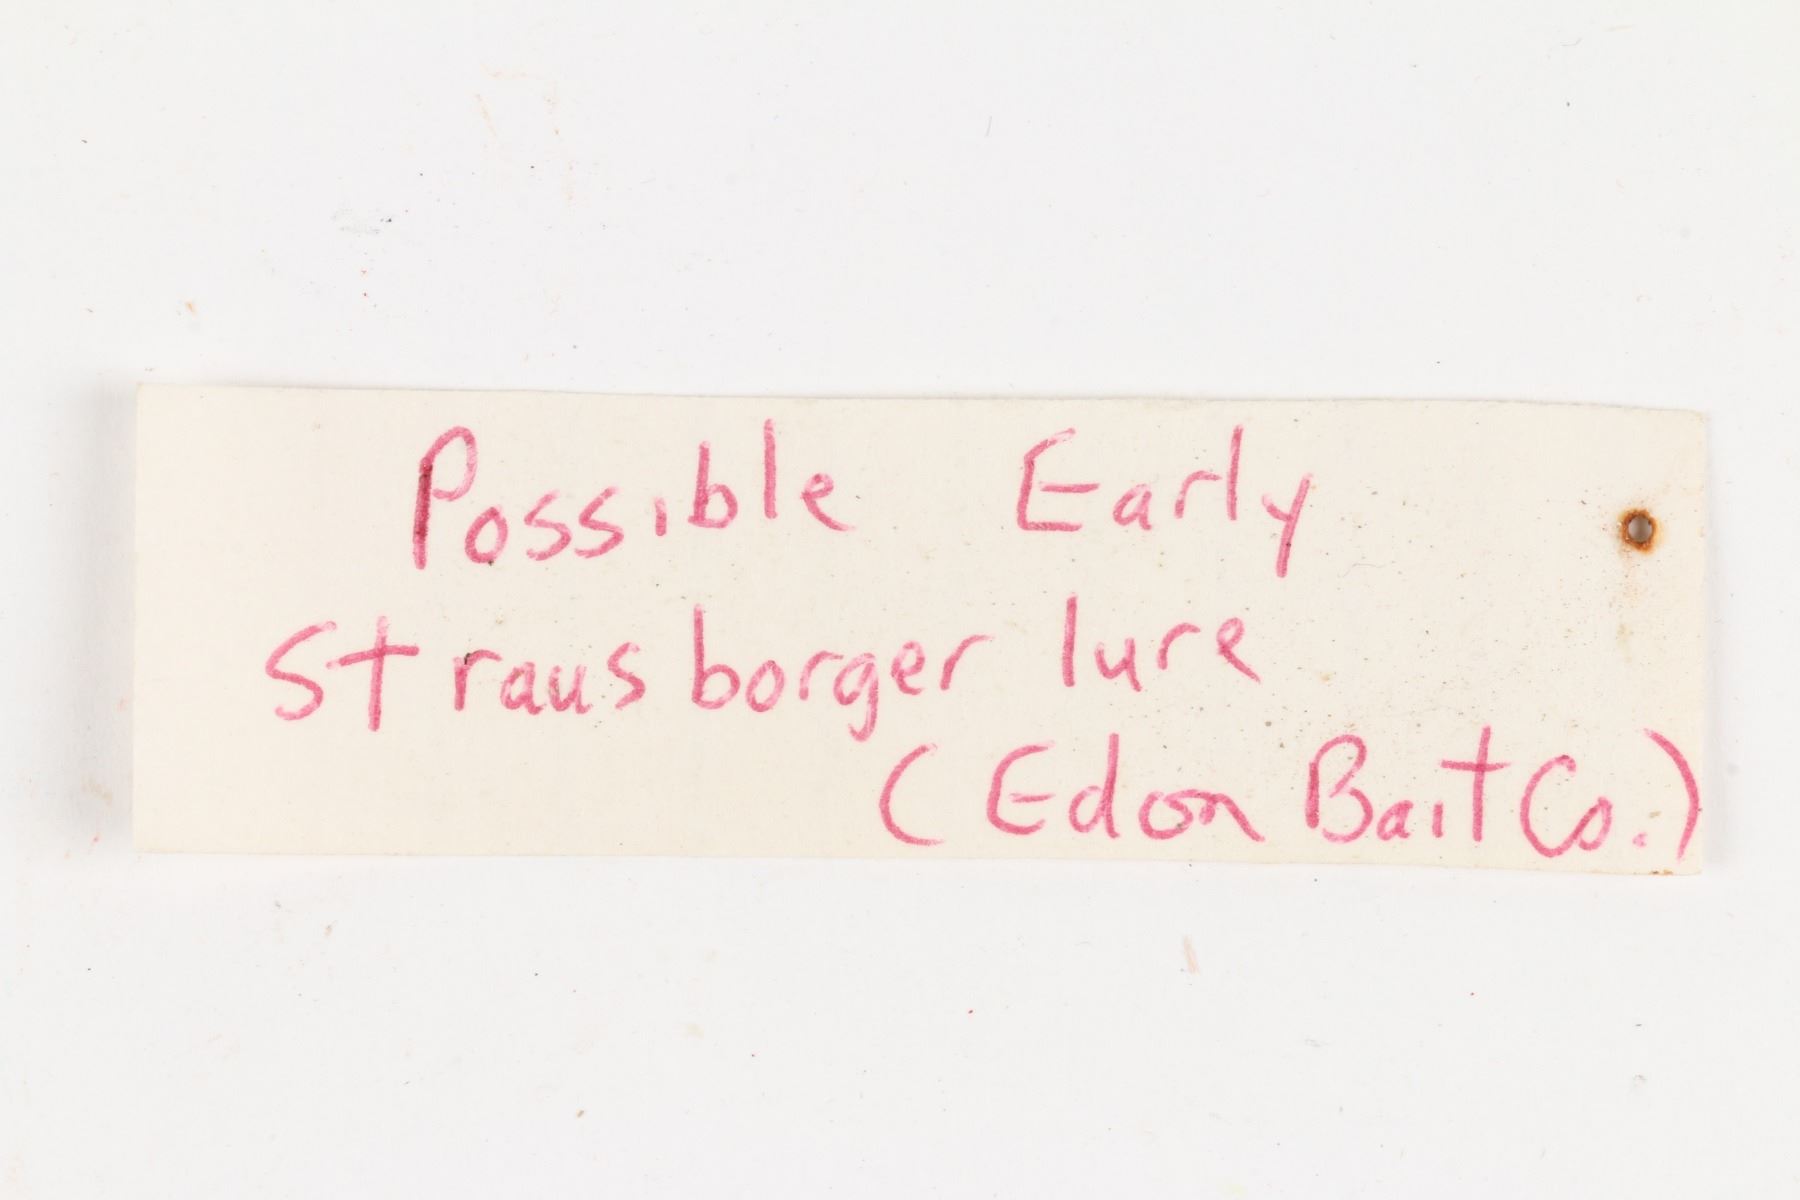 Possible Early
Strausborger lure
(Edon Bait Co.)